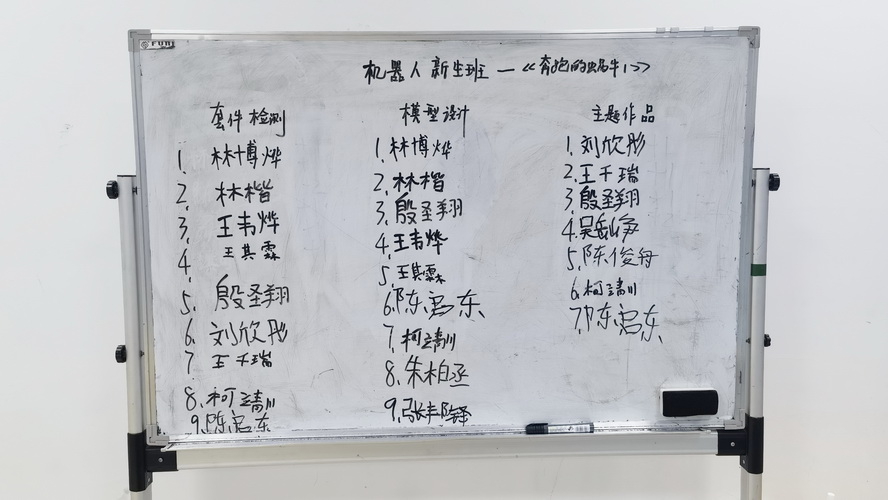 机器人新生班—《奔跑的蜗牛1》
套件检测
1. 林博烨
2. 林楷
3. 王韦烨
4. 王其霖
5. 殷圣翔
6. 刘欣彤
7 王千瑞
8. 柯靖川
9. 陈启东
模型设计
1. 林博烨
2. 林楷
3. 殷圣翔
4. 王韦烨
5. 王其霖
6. 陈启东
7. 柯靖川
8. 朱柏丞
9. 张丰
主题作品
1. 刘欣彤
2. 王千瑞
3. 殷圣翔
4. 吴
5. 陈俊舟
6. 柯靖川
7. 陈启东